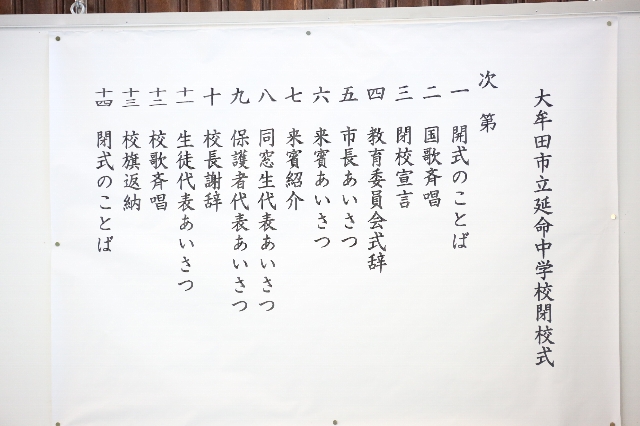 大牟田市立延命中学校閉校式
次第
一 開式のことば
二 国歌斉唱
三 閉校宣言
四 教育委員会式辞
五 市長あいさつ
六 来賓あいさつ
七 来賓紹介
八 同窓生代表あいさつ
九 保護者代表あいさつ
十 校長謝辞
十一 生徒代表あいさつ
十二 校歌斉唱
十三 校旗返納
十四 閉式のことば